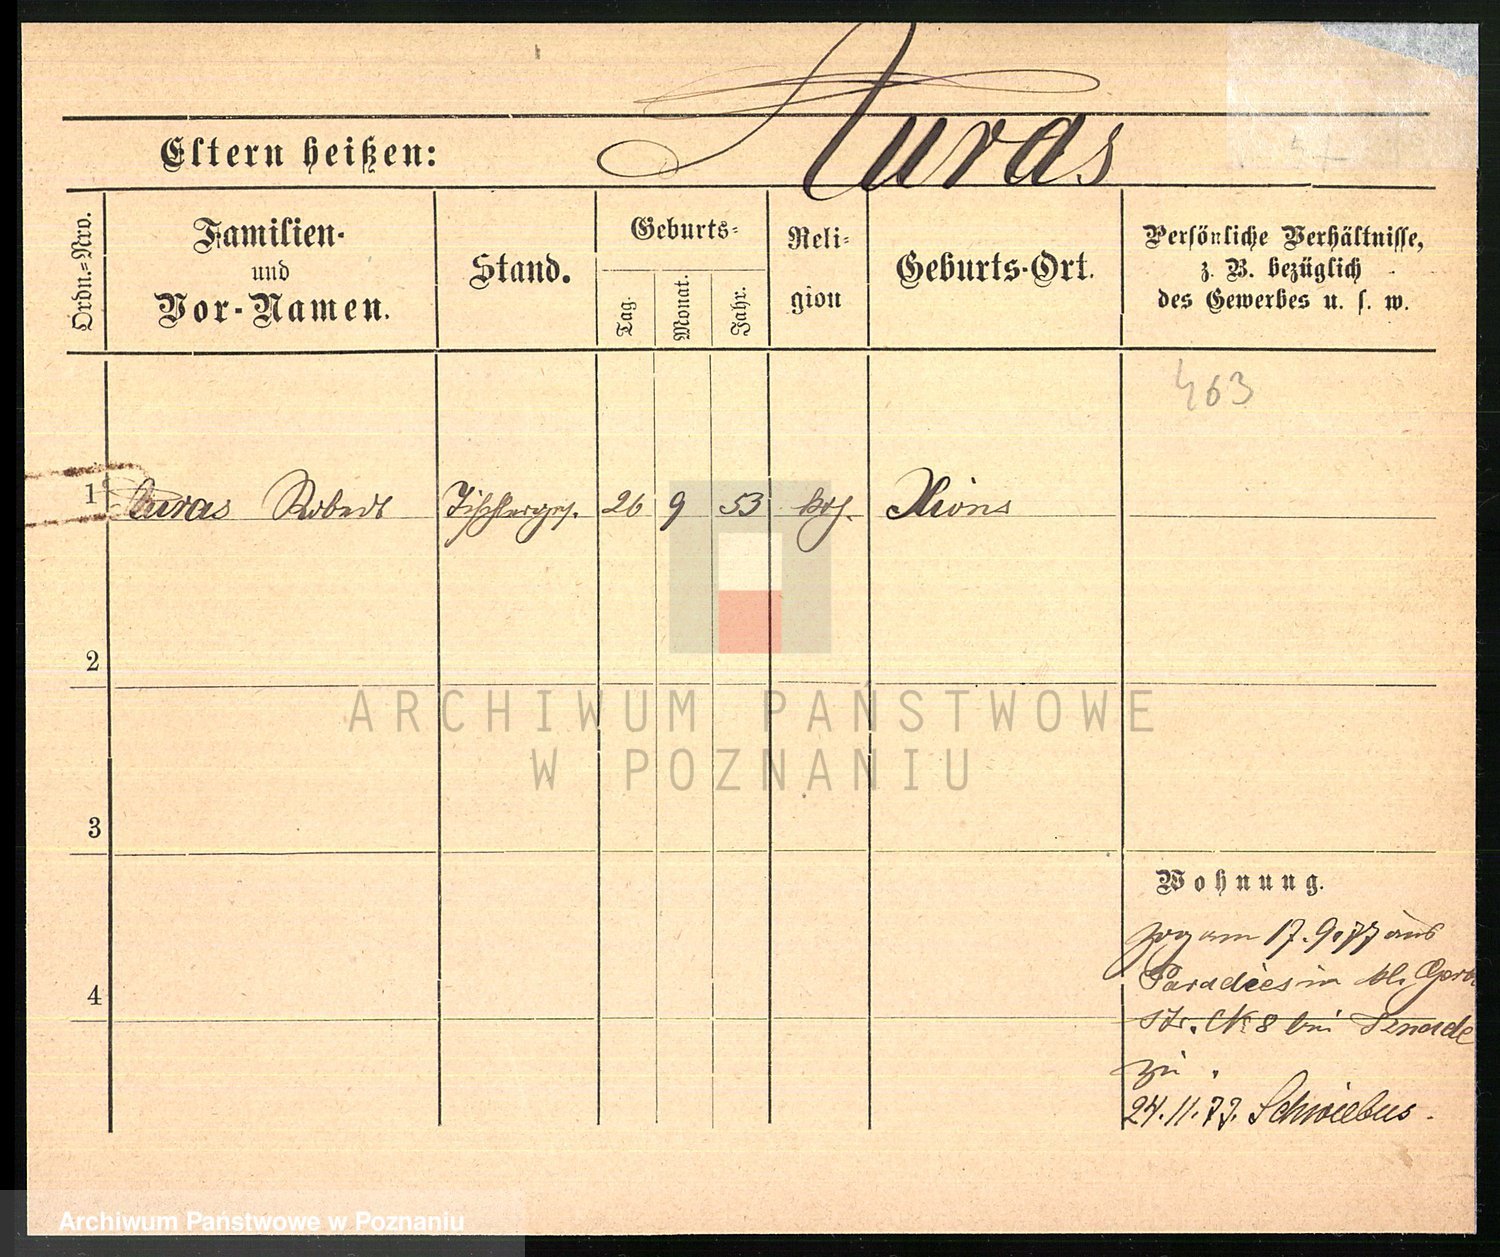 Auras
Eltern heißen:
Ordn.=Nro.
Familien-
und
Vor-Namen.
Stand.
Geburts=
Tag.
Monat.
Jahr.
Reli=
gion
Geburts-Ort.
Persönliche Verhältnisse,
z. B. bezüglich
des Gewerbes u. s. w.
463
1 Auras Robert Tischlerges. 26 9 53 kth. Xions
2
3
4
ARCHIWUM PAŃSTWOWE
W POZNANIU
Wohnung.
zog am 17.9.77 aus
Paradies in kl. Gerb
Str. No 8 bei
zu
24.11.77. Schwiebus.
Archiwum Państwowe w Poznaniu